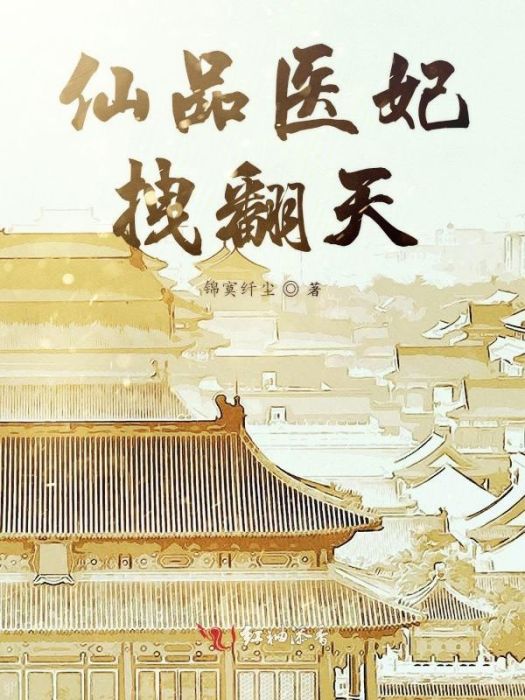 仙品医妃
拽翻天
锦寞纤尘◎著
红袖添香